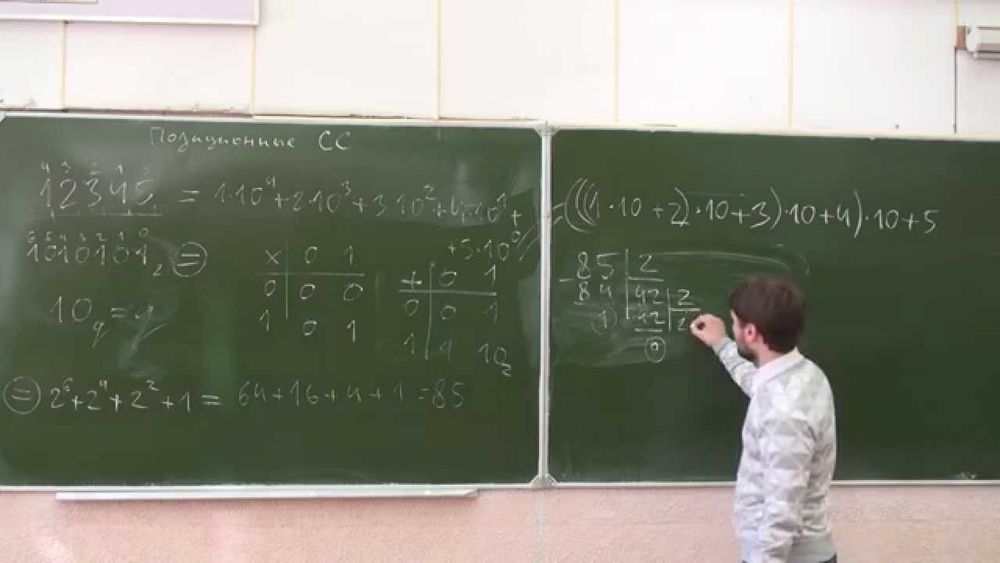 Позиционные СС
4 3 2 1 0
12345 = 1·10⁴+2·10³+3·10²+4·10¹+
+5·10⁰
6 5 4 3 2 1 0
1010101₂ =
10q = q
× 0 1
0 0 0
1 0 1
+ 0 1
0 0 1
1 1 10₂
= 2⁶+2⁴+2²+1 = 64+16+4+1=85
=(((1·10+2)·10+3)·10+4)·10+5
85 2
- 84 42 2
1 42 2
0